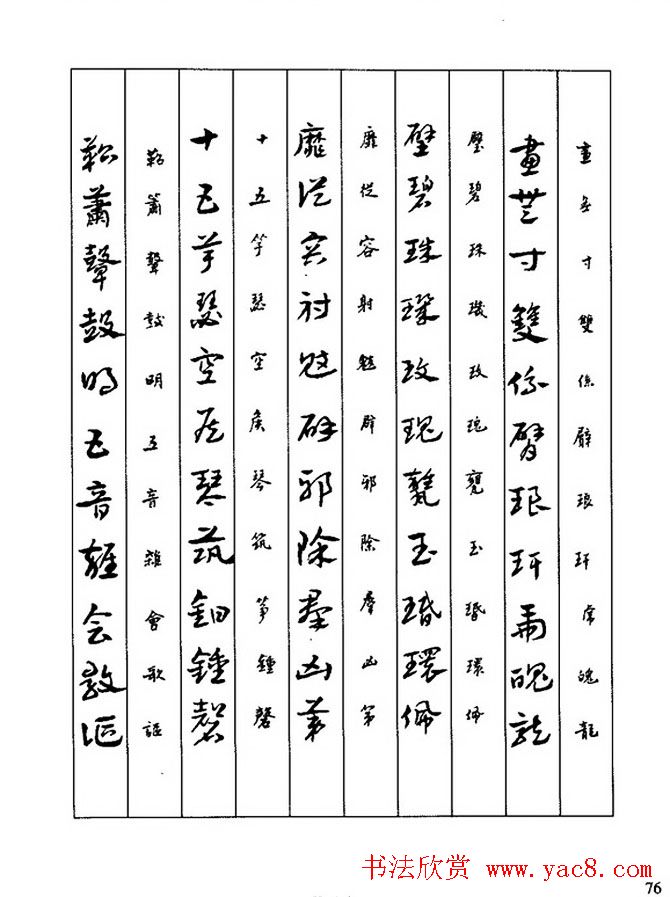 畫無寸雙係臂琅玕虎魄龍
畫無寸雙係臂琅玕虎魄龍
璧碧珠璣玫瑰甕玉瑉環佩
璧碧珠璣玫瑰甕玉瑉環佩
靡從容射魃辟邪除羣凶第
靡從容射魃辟邪除羣凶第
十五竽瑟空侯琴筑箏鍾磬
十五竽瑟空侯琴筑鍾磬
鞀簫聲鼓明五音雜會歌謳
鞀簫聲鼓明五音雜會歌謳
书法欣赏 www.yac8.com
76